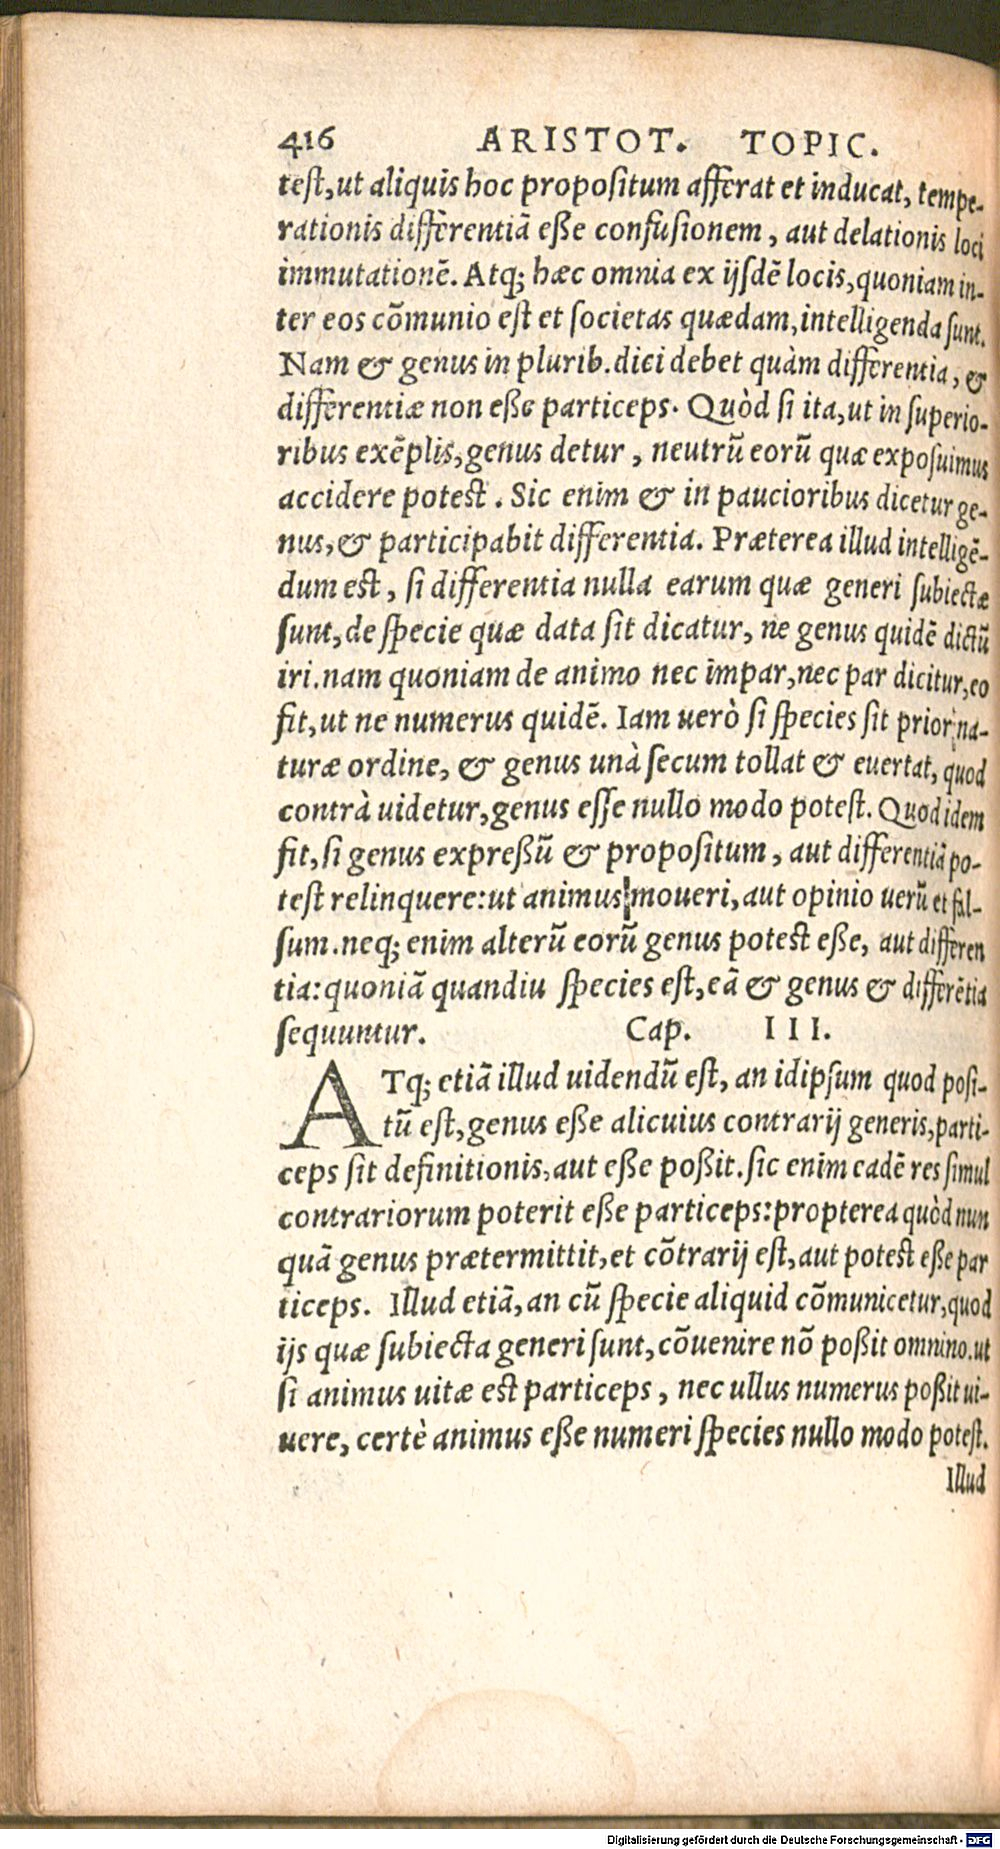 416 ARISTOT. TOPIC.
test, ut aliquis hoc propositum afferat et inducat, tempe-
rationis differentiã eße confusionem, aut delationis loci
immutationẽ. Atq; hæc omnia ex ijsdẽ locis, quoniam in-
ter eos cõmunio est et societas quædam, intelligenda sunt.
Nam & genus in plurib. dici debet quàm differentia, &
differentiæ non eße particeps. Quòd si ita, ut in superio-
ribus exẽplis, genus detur, neutrũ eorũ quæ exposuimus
accidere potest. Sic enim & in paucioribus dicetur ge-
nus, & participabit differentia. Præterea illud intelligẽ-
dum est, si differentia nulla earum quæ generi subiectæ
sunt, de specie quæ data sit dicatur, ne genus quidẽ dictũ
iri. nam quoniam de animo nec impar, nec par dicitur, eo
fit, ut ne numerus quidẽ. Iam uerò si species sit prior na-
turæ ordine, & genus unà secum tollat & euertat, quod
contrà uidetur, genus esse nullo modo potest. Quod idem
fit, si genus expreßũ & propositum, aut differentiã po-
test relinquere: ut animus moueri, aut opinio uerũ et fal-
sum. neq; enim alterũ eorũ genus potest eße, aut differen
tia: quoniã quandiu species est, eã & genus & differẽtia
sequuntur. Cap. III.
ATq; etiã illud uidendũ est, an id ipsum quod posi-
tũ est, genus eße alicuius contrarij generis, parti-
ceps sit definitionis, aut eße poßit. sic enim eadẽ res simul
contrariorum poterit eße particeps: propterea quòd nun
quã genus prætermittit, et cõtrarij est, aut potest eße par
ticeps. Illud etiã, an cũ specie aliquid cõmunicetur, quod
ijs quæ subiecta generi sunt, cõuenire nõ poßit omnino. ut
si animus uitæ est particeps, nec ullus numerus poßit ui-
uere, certè animus eße numeri species nullo modo potest.
Illud
Digitalisierung gefördert durch die Deutsche Forschungsgemeinschaft - DFG